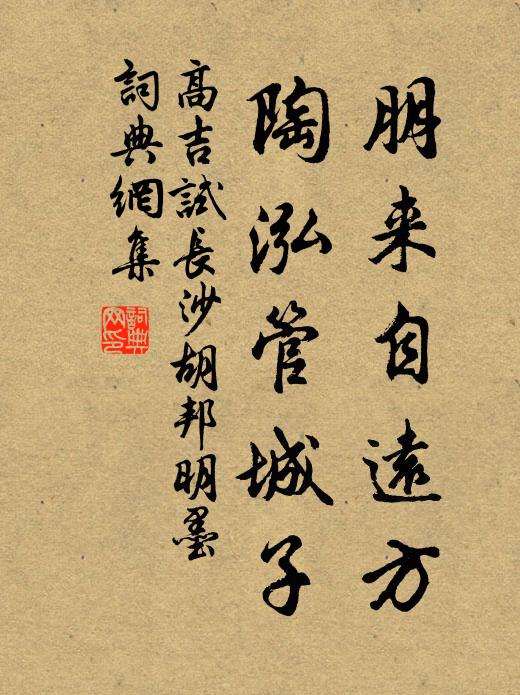 朋来自遠方
陶泓管城子
高吉試長沙胡邦明墨
詞典網集
詞典网印